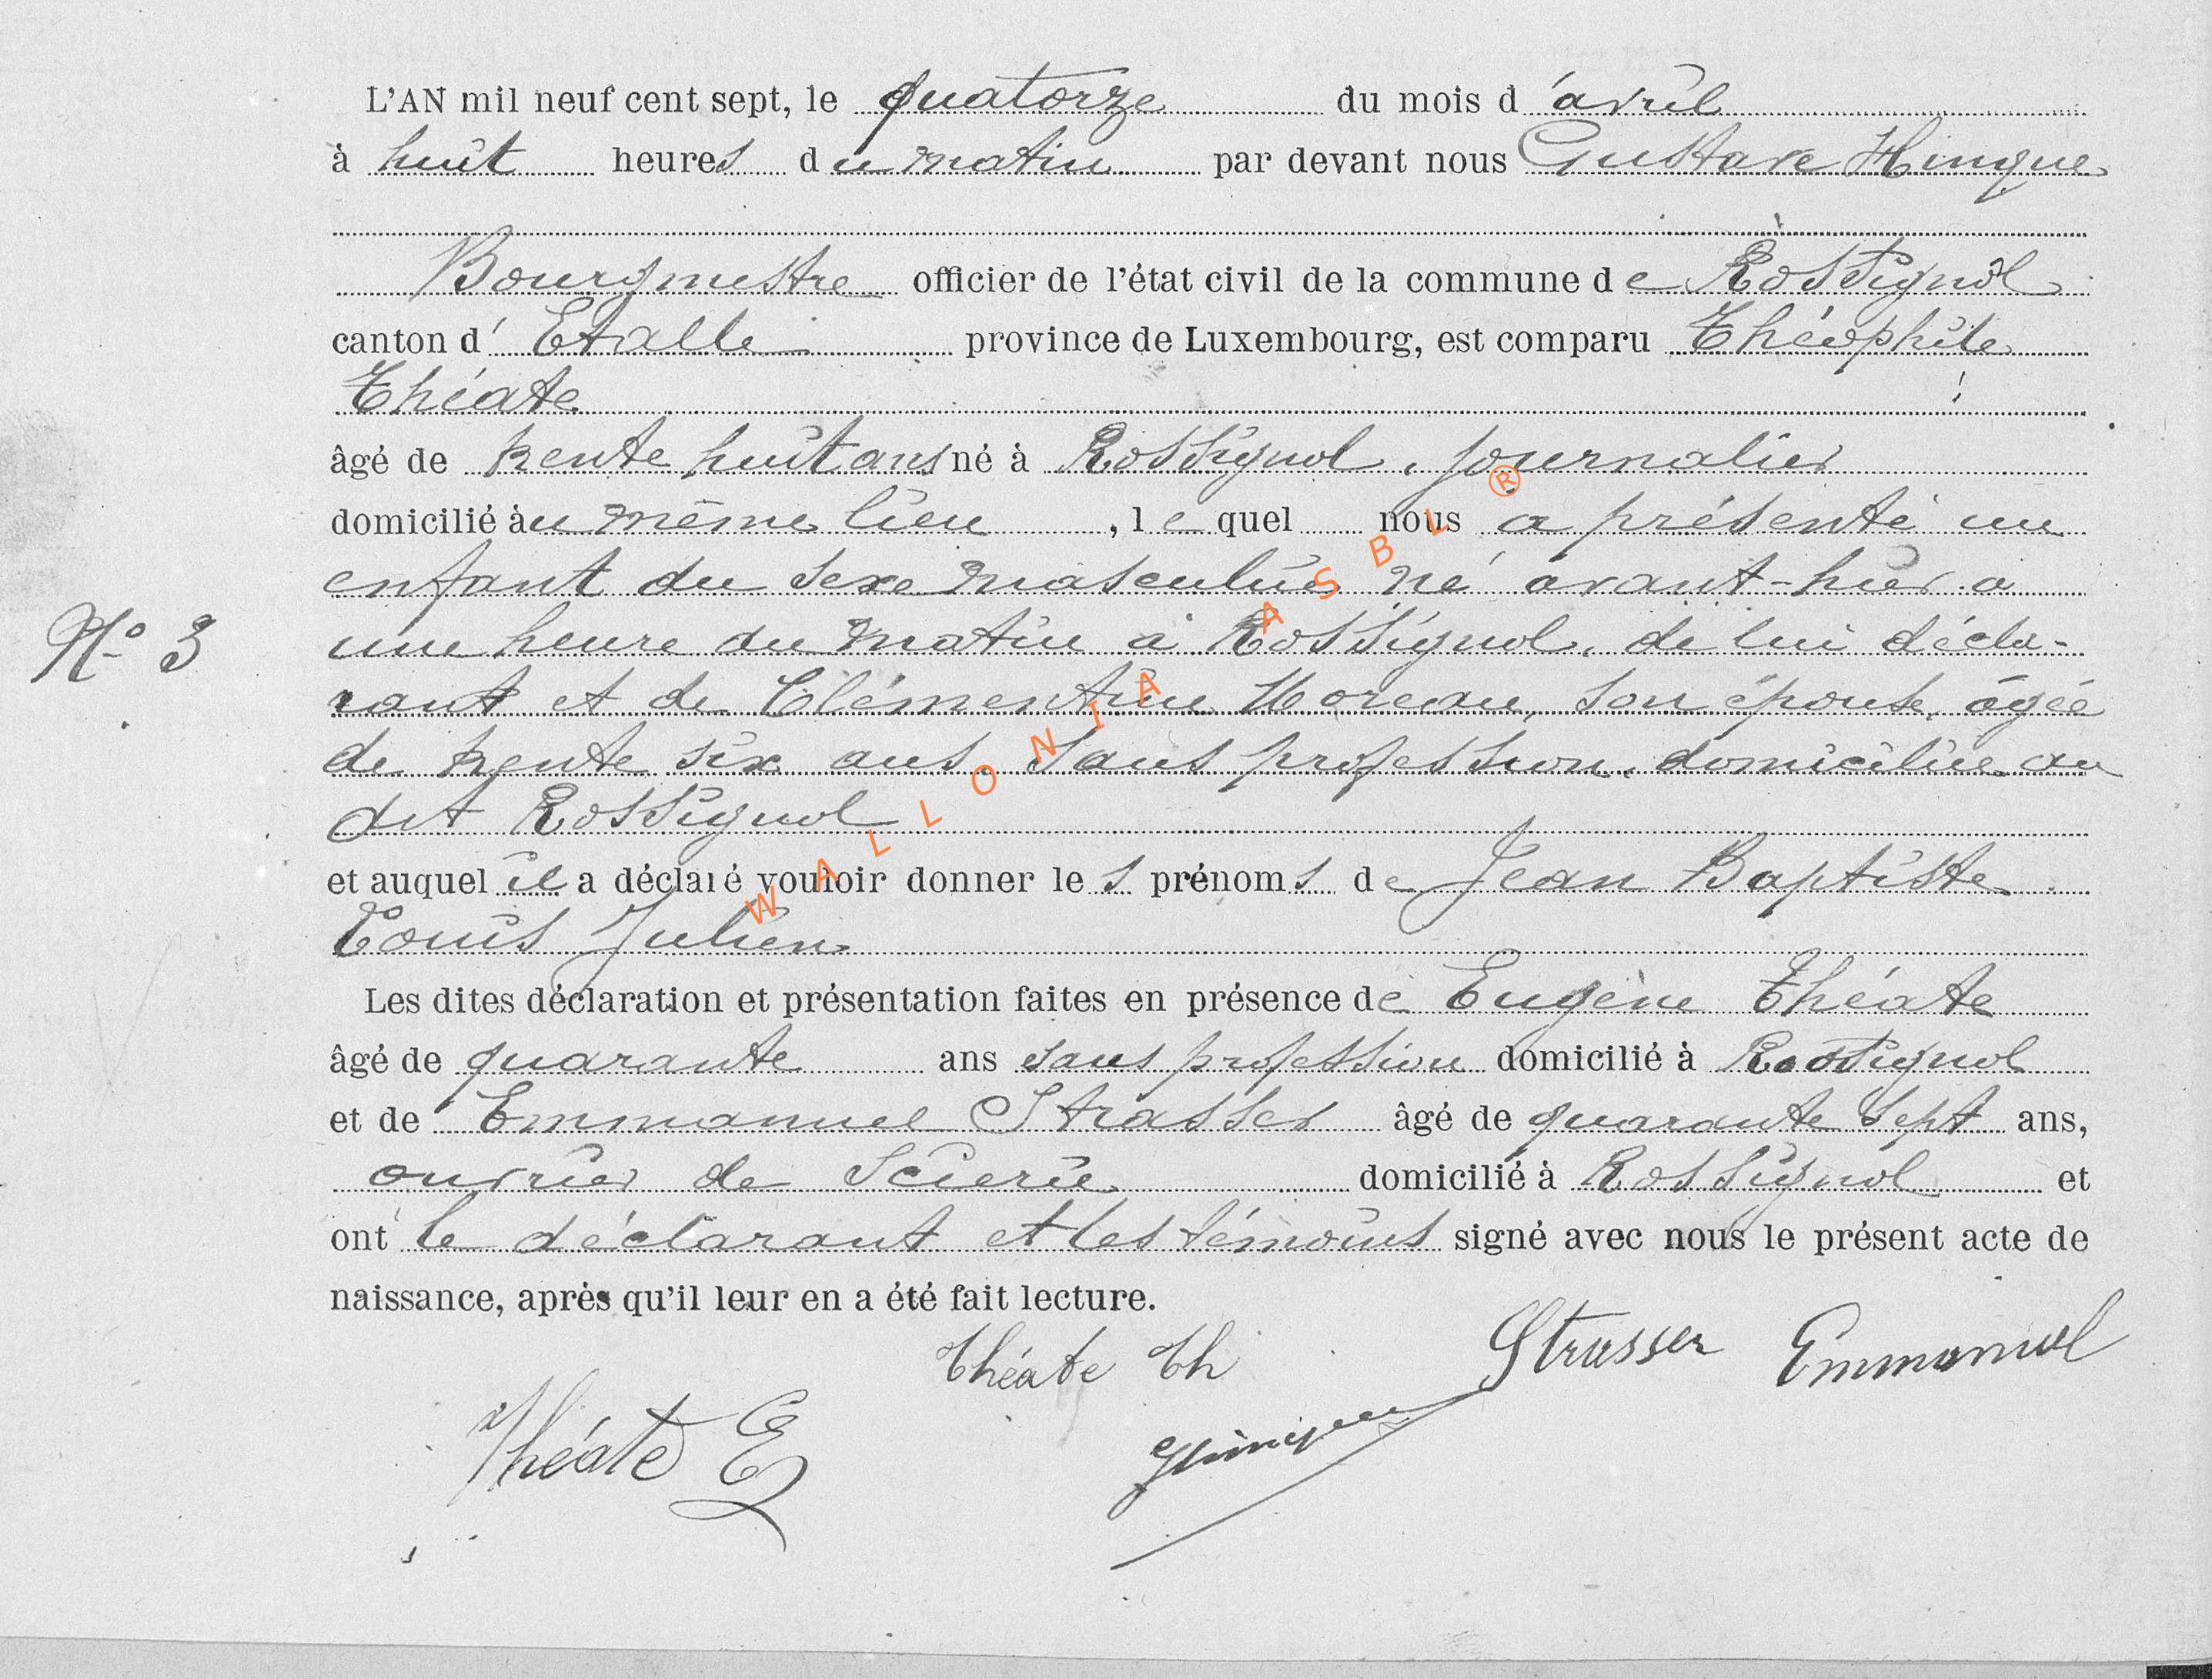 L'AN mil neuf cent sept, le quatorze du mois d'avril
à huit heures du matin par devant nous Gustave Hinque
Bourgmestre officier de l'état civil de la commune de Rossignol
canton d'Etalle province de Luxembourg, est comparu Théophile
Théate
âgé de trente huit ans né à Rossignol, journalier
domicilié au même lieu, lequel nous a présenté un
enfant du sexe masculin né avant-hier a
N° 3
une heure du matin à Rossignol, de lui décla-
rant et de Clémentine Moreau, son épouse, âgée
de trente six ans, sans profession, domiciliée au
dit Rossignol
et auquel il a déclaré vouloir donner les prénoms de Jean Baptiste
Louis Julien
Les dites déclaration et présentation faites en présence de Eugène Théate
âgé de quarante ans sans profession domicilié à Rossignol
et de Emmanuel Strasser âgé de quarante sept ans,
ouvrier de scierie domicilié à Rossignol et
ont le déclarant et les témoins signé avec nous le présent acte de
naissance, après qu'il leur en a été fait lecture.
Théate Th Strasser Emmanuel
Théate E Hinque
WALLONIA ASBL ®